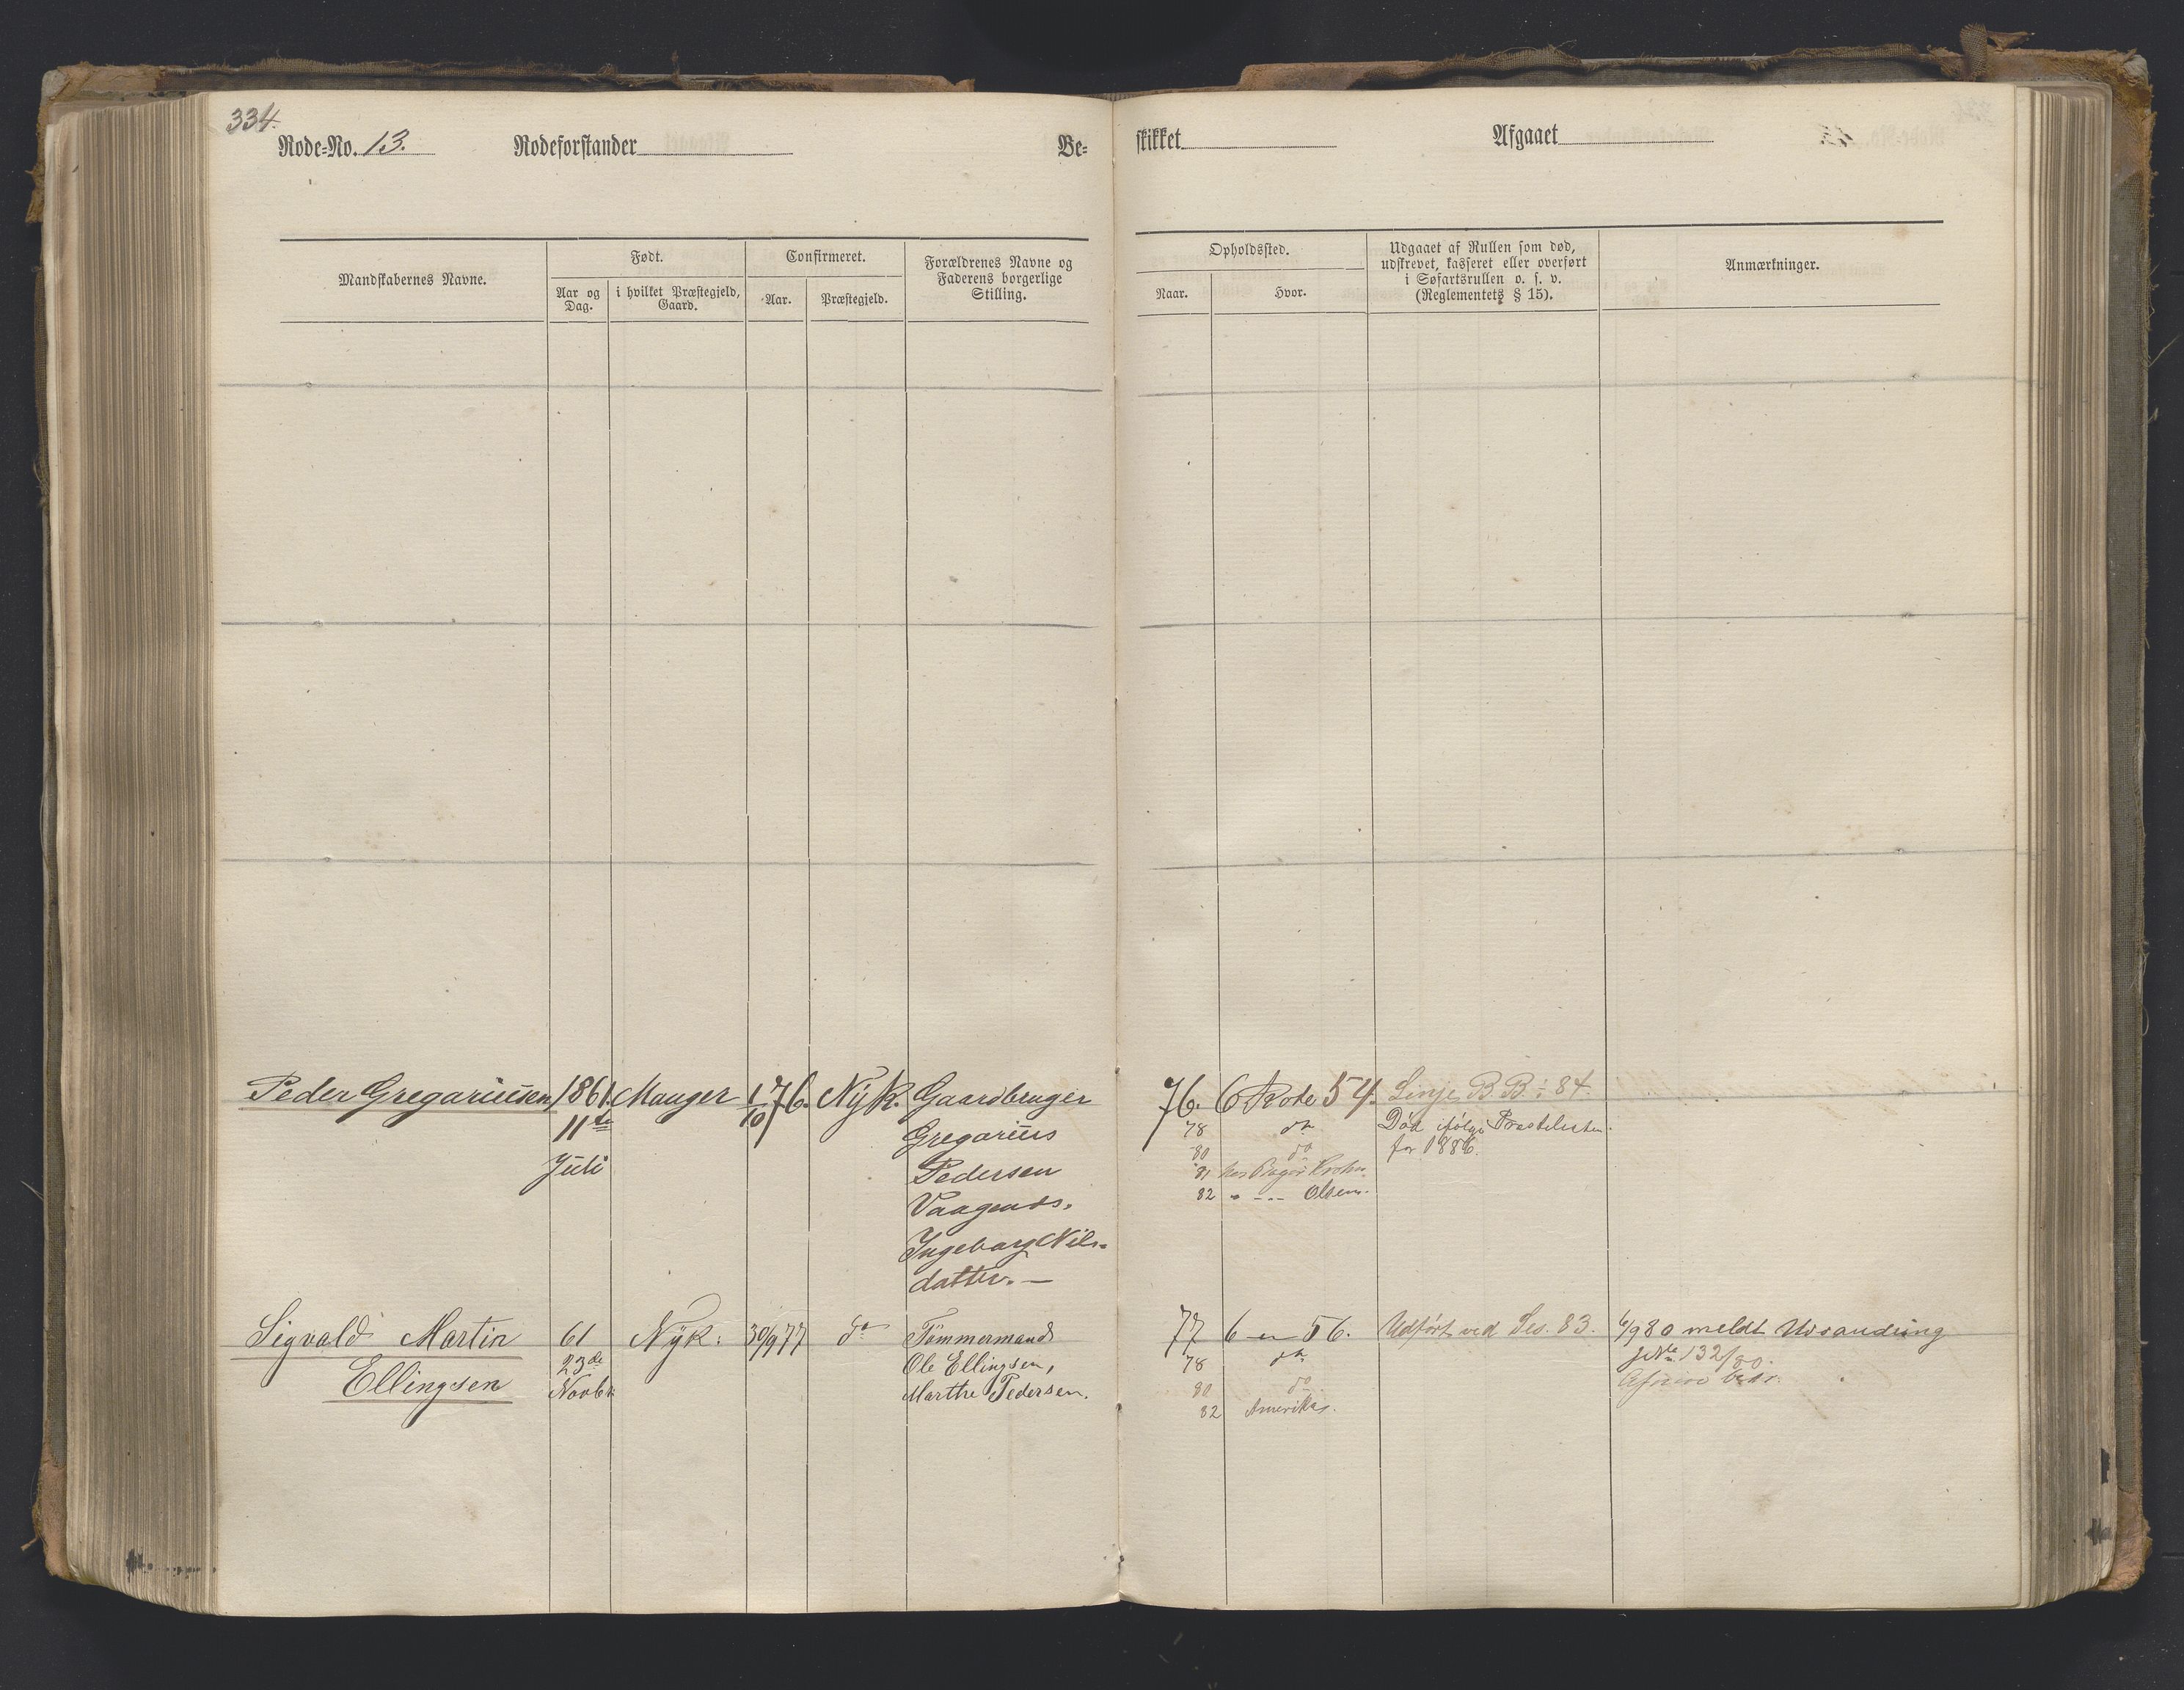 334.
Rode-No. 13. Rodeforstander Be-
skikket Afgaaet
Mandskabernes Navne.
Født.
Aar og Dag.
i hvilket Præstegjeld, Gaard.
Confirmeret.
Aar.
Præstegjeld.
Forældrenes Navne og
Faderens borgerlige
Stilling.
Opholdssted.
Naar.
Hvor.
Udgaaet af Rullen som død,
udskrevet, kasseret eller overført
i Søfartsrullen o. s. v.
(Reglementets § 15).
Anmærkninger.
Peder Gregariusen 1861. Manger 1/10 76. Nyk. Gaardbruger
11te
Juli
Gregarius
Pedersen
Vaagenæs.
Ingeborg Nils-
datter. —
76. 6 Rode 54.
78 do
80 do
81 hos Bager Krohn
82 " - - - Olsen.
Linje B B ÷ 84.
Død ifølge Præstelisten
for 1886.
Sigvald Martin 61 Nyk: 30/9 77 do Tømmermand
Ellingsen
23de
Novbr
Ole Ellingsen,
Marthe Pedersen.
77 6 — 56.
78 do
80 do
82 Amerika.
Udført ved Ses. 83.
6/9 80 meldt Udvandring
JNo 132/80.